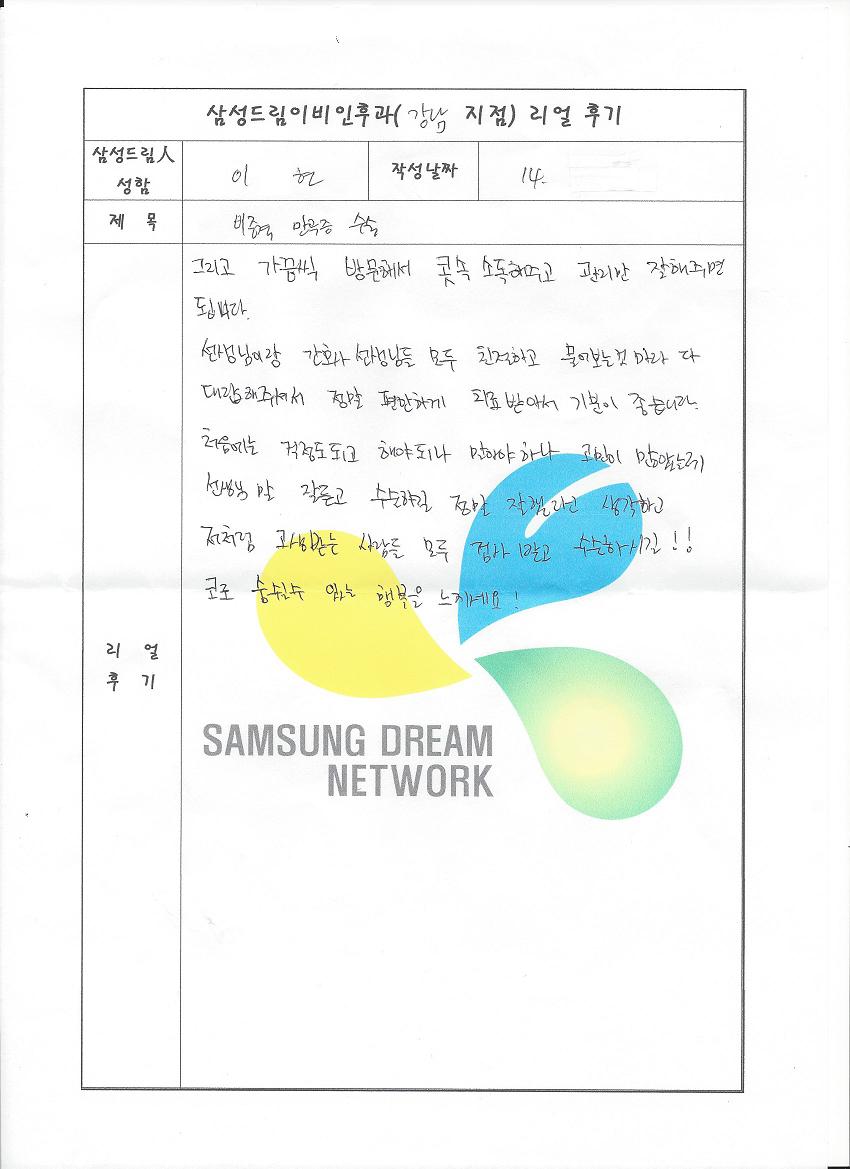 삼성드림이비인후과( 강남 지점) 리얼 후기
삼성드림人 성함
이 현
작성날짜
14.
제 목
비중격 만곡증 수술
리 얼
후 기
그리고 가끔씩 방문해서 콧속 소독해주고 관리만 잘해주면
됩니다.
선생님이랑 간호사 선생님들 모두 친절하고 물어보는것 마다 다
대답해주셔서 정말 편안하게 치료받아서 기분이 좋습니다.
처음에는 걱정도되고 해야되나 말아야하나 고민이 많았는데
선생님 말 잘듣고 수술하길 정말 잘했다고 생각하고
저처럼 고생받는 사람들 모두 겁내 말고 수술하시길!!
코로 숨쉴수 있는 행복을 느끼세요!
SAMSUNG DREAM
NETWORK